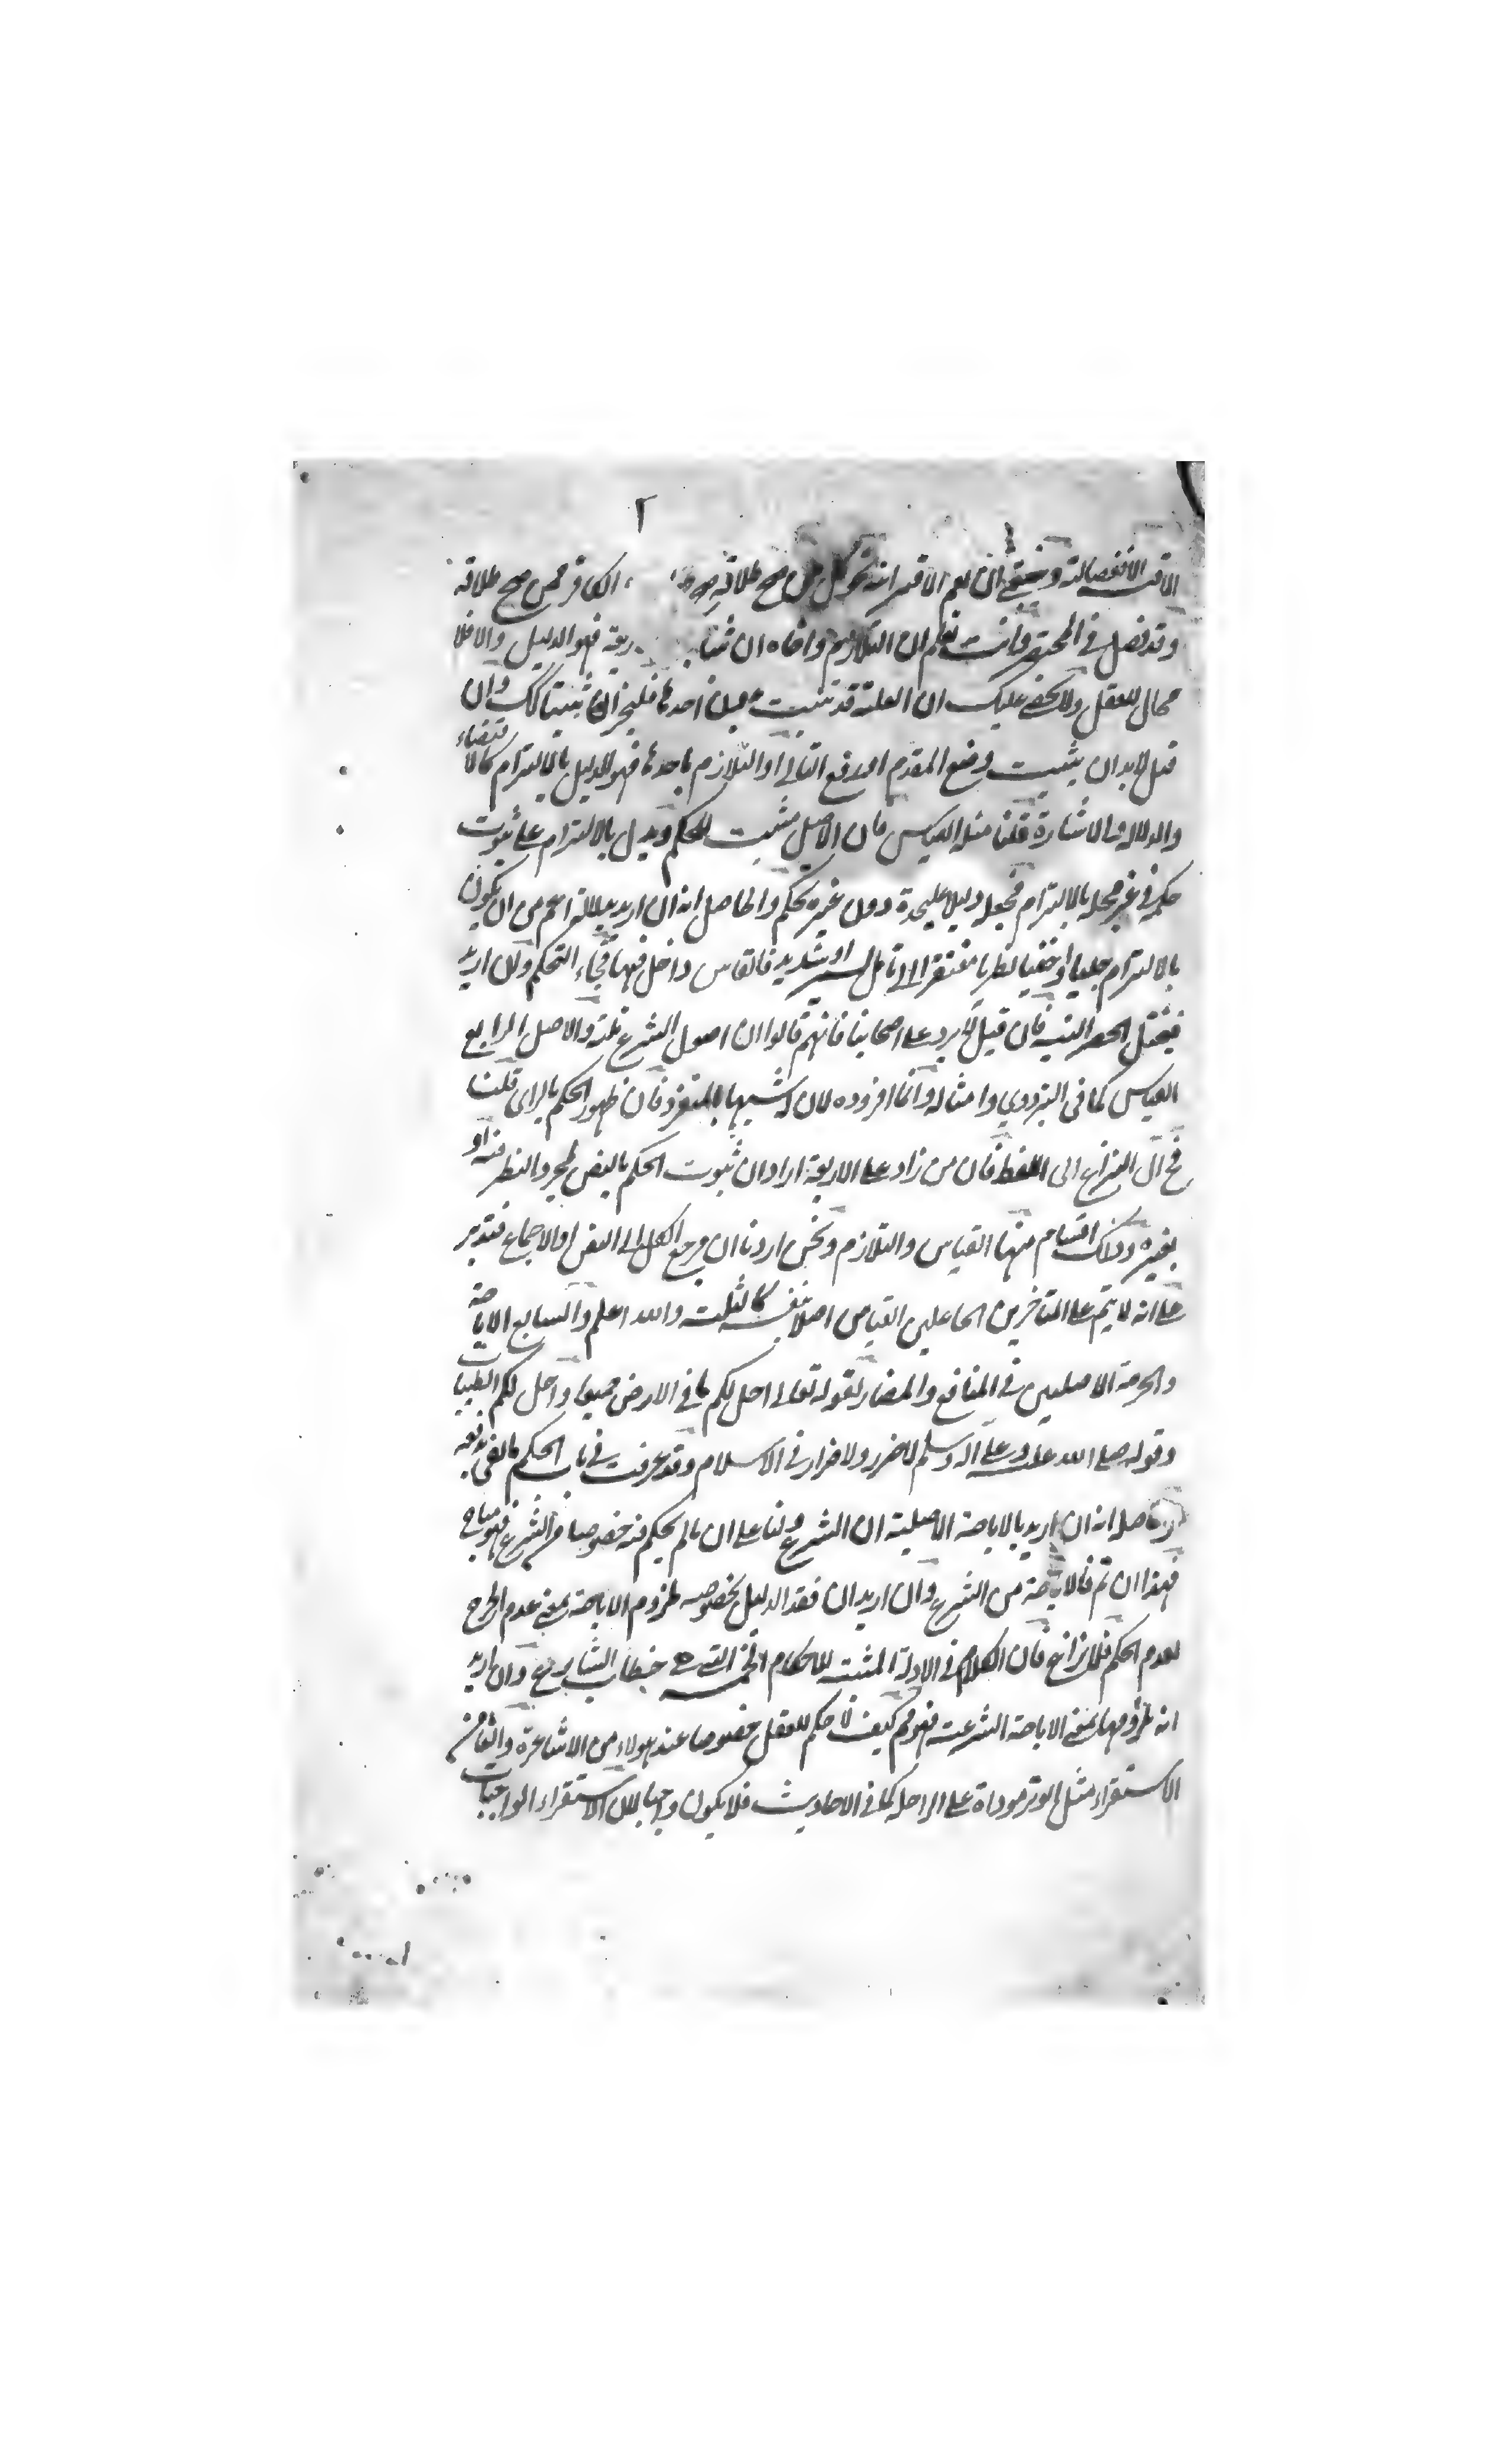 ٢
وقد فصل في المختصر وانت تعلم ان التلازم واخاه ان ثبتا فهو الدليل والا فلا
مجال للعقل ولا يخفى عليك ان العلة قد تثبت
قيل لا بد ان يثبت وضع المقدم او رفع التالي او التلازم باحدها فهو الدليل بالالتزام كالاقتضاء
والدلالة والاشارة قلنا مثله القياس فان الاصل مثبت للحكم ويدل بالالتزام على ثبوت
حكمه في غير محله بالالتزام فجعله دليلا عليحدة دون غيره تحكم والحاصل انه ان اريد اعم من ان يكون
بالالتزام جليا او خفيا نظريا مفتقرا الى تامل يسير او شديد فالقياس داخل فيها فجاء التحكم وان اريد
فيختل الحصر البتة فان قيل يرد على اصحابنا فانهم قالوا ان اصول الشرع ثلثة والاصل الرابع
القياس كما في البزدوي وامثاله وانما افردوه لان له شبها بالمتفرد فان ظهور الحكم بالراى قلنا
فح ال النزاع الى اللفظ فان من زاد على الاربعة اراد ان ثبوت الحكم بالنص لمجرد النظر فيه او
بغيره وذلك اقسام منها القياس والتلازم ونحن اردنا ان مرجع الكل الى النص او الاجماع فتدبر
على انه لا يتم على المتاخرين الجاعلين القياس اصلا بنفسه كالثلث والله اعلم والسابع الاباحة
والحرمة الاصليين في المنافع والمضار لقوله تعالى احل لكم ما في الارض جميعا واحل لكم الطيبات
وقوله صلى الله عليه وعلى اله وسلم لا ضرر ولا ضرار في الاسلام وقد عرفت في باب الحكم
والحاصل انه ان اريد بالاباحة الاصلية ان الشرع دلنا على ان ما لم يحكم فيه خصوصا من الشرع فهو مباح
فهذا ان تم فالاباحة من الشرع وان اريد ان فقد الدليل بخصوصه ملزوم الاباحة بمعنى عدم الحرج
لعدم الحكم فلا نزاع فان الكلام في الادلة المثبتة للاحكام الخمسة التي هي خطاب الشارع وان اريد
انه ملزومها بمعنى الاباحة الشرعية فهو مم كيف لا حكم للعقل خصوصا عند هولاء من الاشاعرة والثامن
الاستقراء مثل الوتر موداة على الراحلة كما في الاحاديث فلا يكون واجبا لان الاستقراء الواجبات